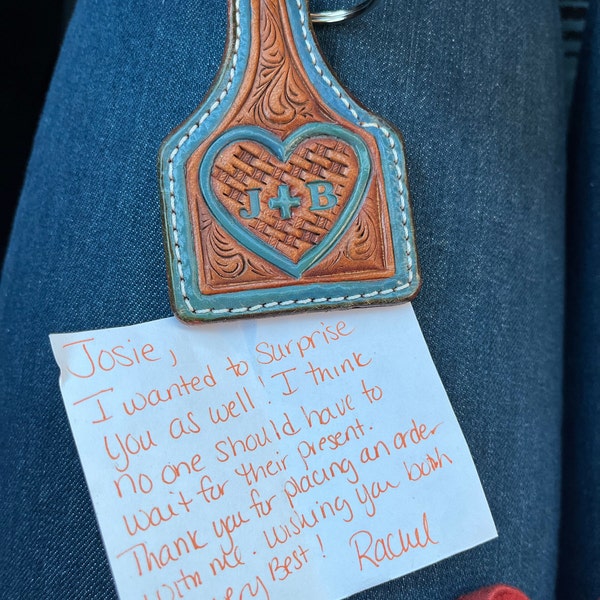 J + B
Josie,
I wanted to surprise
you as well! I think
no one should have to
wait for their present.
Thank you for placing an order
with me. Wishing you both
very Best! Rachel